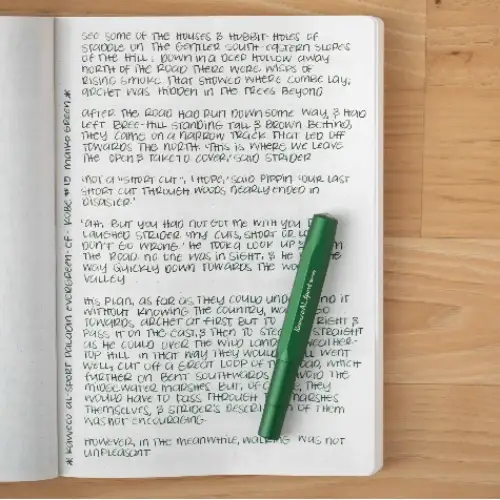 SEE SOME OF THE HOUSES & HOBBIT-HOLES OF
STADDLE ON THE GENTLER SOUTH-EASTERN SLOPES
OF THE HILL; DOWN IN A DEEP HOLLOW AWAY
NORTH OF THE ROAD THERE WERE WISPS OF
RISING SMOKE THAT SHOWED WHERE COMBE LAY;
ARCHET WAS HIDDEN IN THE TREES BEYOND
AFTER THE ROAD HAD RUN DOWN SOME WAY, & HAD
LEFT BREE-HILL STANDING TALL & BROWN BEHIND,
THEY COME ON A NARROW TRACK THAT LED OFF
TOWARDS THE NORTH. 'THIS IS WHERE WE LEAVE
THE OPEN & TAKE TO COVER,' SAID STRIDER
'NOT A "SHORT CUT", I HOPE,' SAID PIPPIN 'OUR LAST
SHORT CUT THROUGH WOODS NEARLY ENDED IN
DISASTER.'
'AH, BUT YOU HAD NOT GOT ME WITH YOU
LAUGHED STRIDER 'MY CUTS, SHORT OR
DON'T GO WRONG.' HE TOOK A LOOK UP &
THE ROAD. NO ONE WAS IN SIGHT; & HE
WAY QUICKLY DOWN TOWARDS THE
VALLEY
HIS PLAN, AS FAR AS THEY COULD IT
WITHOUT KNOWING THE COUNTRY, WAS GO
TOWARDS ARCHET AT FIRST, BUT TO RIGHT &
PASS IT ON THE EAST, & THEN TO STRAIGHT
AS HE COULD OVER THE WILD
TOP HILL. IN THAT WAY THEY WOULD WENT
WELL, CUT OFF A GREAT LOOP OF WHICH
FURTHER ON BENT SOUTHWARDS AVOID THE
MIDGEWATER MARSHES. BUT, OF THEY
WOULD HAVE TO PASS THROUGH MARSHES
THEMSELVES, & STRIDER'S OF THEM
WAS NOT ENCOURAGING.
HOWEVER, IN THE MEANWHILE, WAS NOT
UNPLEASANT
* KAWECO AL SPORT PALADIN EVERGREEN-EF- KOBE #15 MAIKO GREEN *
Kaweco AL Sport